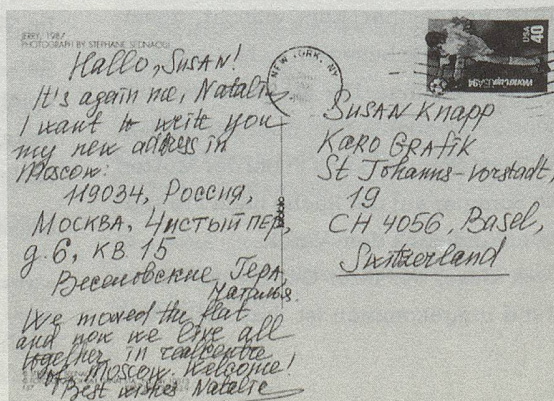 JERRY, 1987
PHOTOGRAPH BY STEPHANE SEDNAOUI
Hallo, SUSAN!
It's again me, Natalie
I want to write you
my new address in
Moscow:
119034, Россия,
Москва, Чистый пер,
д. 6, кв 15
Веселовские Гера,
Наталья.
We moved the flat
and now we live all
together in realcentre
of Moscow. Welcome!
Best wishes Natalie
NEW YORK, NY
USA
40
World Cup USA94
SUSAN Knapp
KARO GRAFIK
St Johanns-vorstadt,
19
CH 4056, Basel,
Switzerland